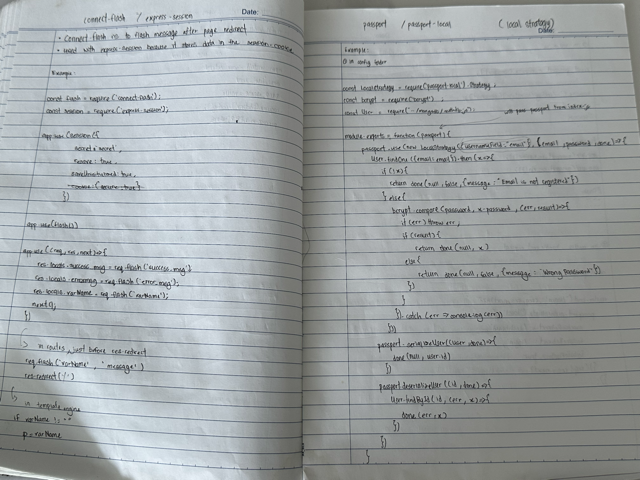 connect-flash / express-session
Date:
• connect flash is to flash message after page redirect
• used with express-session because it stores data in the session-cookie
Example:
const flash = require('connect-flash');
const session = require('express-session');
app.use(session({
secret: secret,
resave: true,
saveUninitialized: true,
cookie: {secure: true}
})
app.use(flash())
app.use((req, res, next) => {
res.locals.success_msg = req.flash('success_msg');
res.locals.error_msg = req.flash('error_msg');
res.locals.varName = req.flash('varName');
next();
})
in routes, just before res.redirect
req.flash('varName', "message")
res.redirect('/')
in template engine
if varName != ""
p = varName
passport / passport-local (local strategy)
Date:
Example:
in config folder
const localStrategy = require('passport-local').Strategy;
const bcrypt = require('bcrypt');
const User = require(
module.exports = function(passport){
passport.use(new LocalStrategy({usernameField: "email"}, (email, password, done) => {
User.findOne({email: email}).then(x => {
if(!x){
return done(null, false, {message: "Email is not registered"})
} else{
bcrypt.compare(password, x.password, (err, result) => {
if(err) throw err;
if(result){
return done(null, x)
else{
return done(null, false, {message: "Wrong Password"})
})
}
}).catch(err => console.log(err))
}))
passport.serializeUser((user, done) => {
done(null, user.id)
})
passport.deserializeUser((id, done) => {
User.findById(id, (err, x) => {
done(err, x)
})
})
}